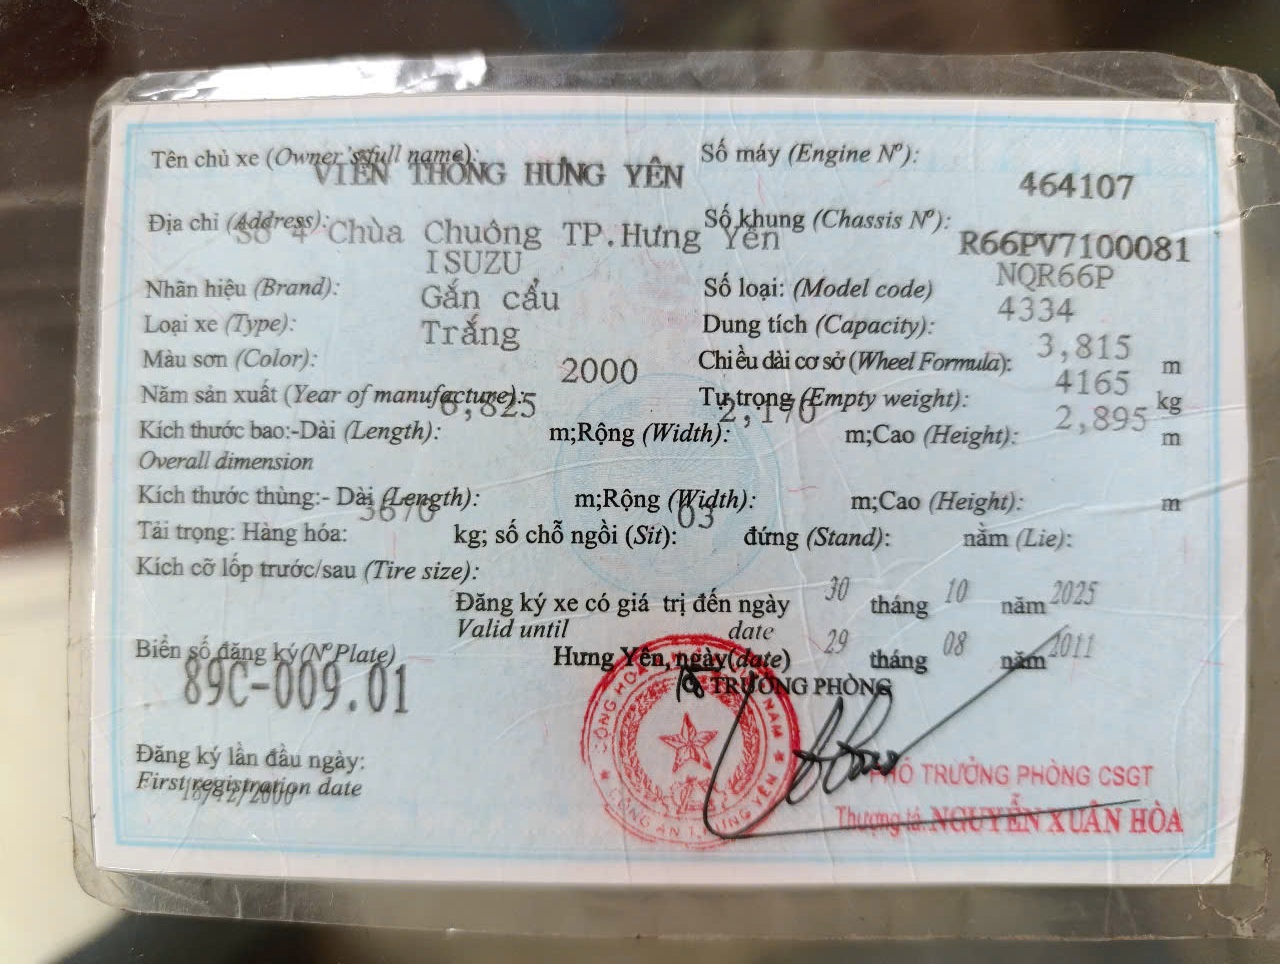 Tên chủ xe (Owner's full name): VIỄN THÔNG HƯNG YÊN
Số máy (Engine Nº): 464107
Địa chỉ (Address): Số 4 Chùa Chuông TP.Hưng Yên
Số khung (Chassis Nº): R66PV7100081
Nhãn hiệu (Brand): ISUZU
Số loại: (Model code) NQR66P
Loại xe (Type): Gắn cẩu
Dung tích (Capacity): 4334
Màu sơn (Color): Trắng
Chiều dài cơ sở (Wheel Formula): 3,815 m
Năm sản xuất (Year of manufacture): 2000
Tự trọng (Empty weight): 4165 kg
Kích thước bao:-Dài (Length): 6,825 m;Rộng (Width): 2,170 m;Cao (Height): 2,895 m
Overall dimension
Kích thước thùng:- Dài (Length): m;Rộng (Width): m;Cao (Height): m
Tải trọng: Hàng hóa: 3670 kg; số chỗ ngồi (Sit): 03 đứng (Stand): nằm (Lie):
Kích cỡ lốp trước/sau (Tire size):
Đăng ký xe có giá trị đến ngày 30 tháng 10 năm 2025
Valid until date
Hưng Yên, ngày(date) 29 tháng 08 năm 2011
Biển số đăng ký(NºPlate)
89C-009.01
TRƯỞNG PHÒNG
Đăng ký lần đầu ngày:
First registration date
18/12/2000
PHÓ TRƯỞNG PHÒNG CSGT
Thượng tá: NGUYỄN XUÂN HÒA